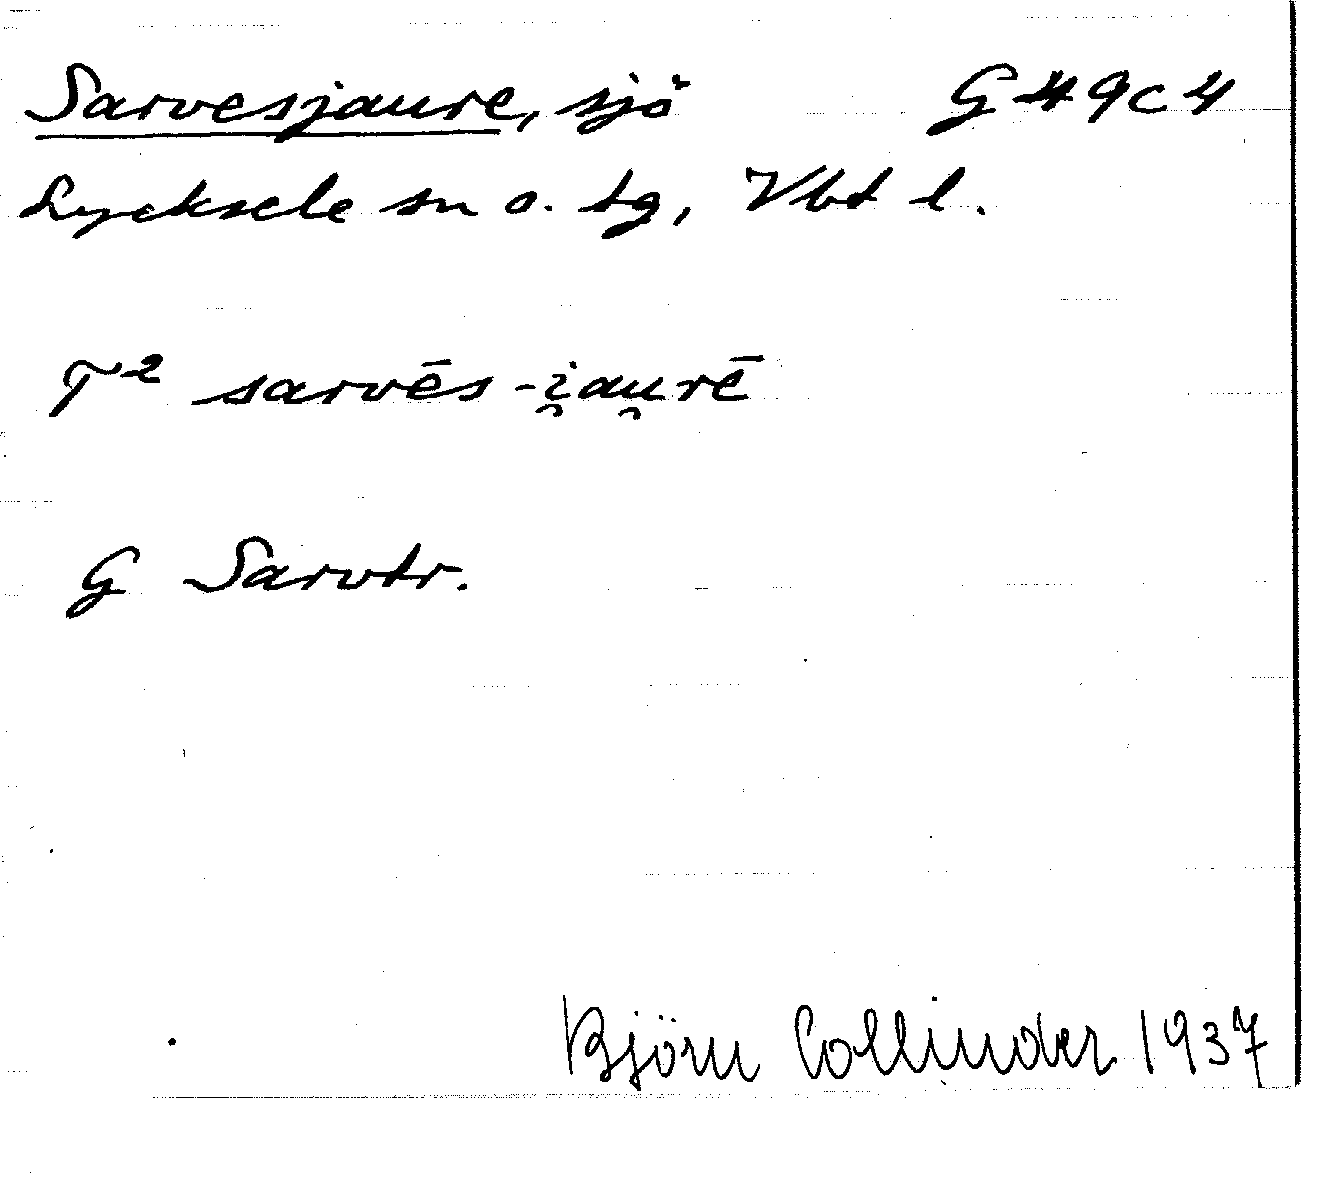 Sarvesjaure, sjö G 49c4
Lycksele sn o. tg, Vbt l.
T² sarvēs-i̯au̯rē
G Sarvtr.
Björn Collinder 1937